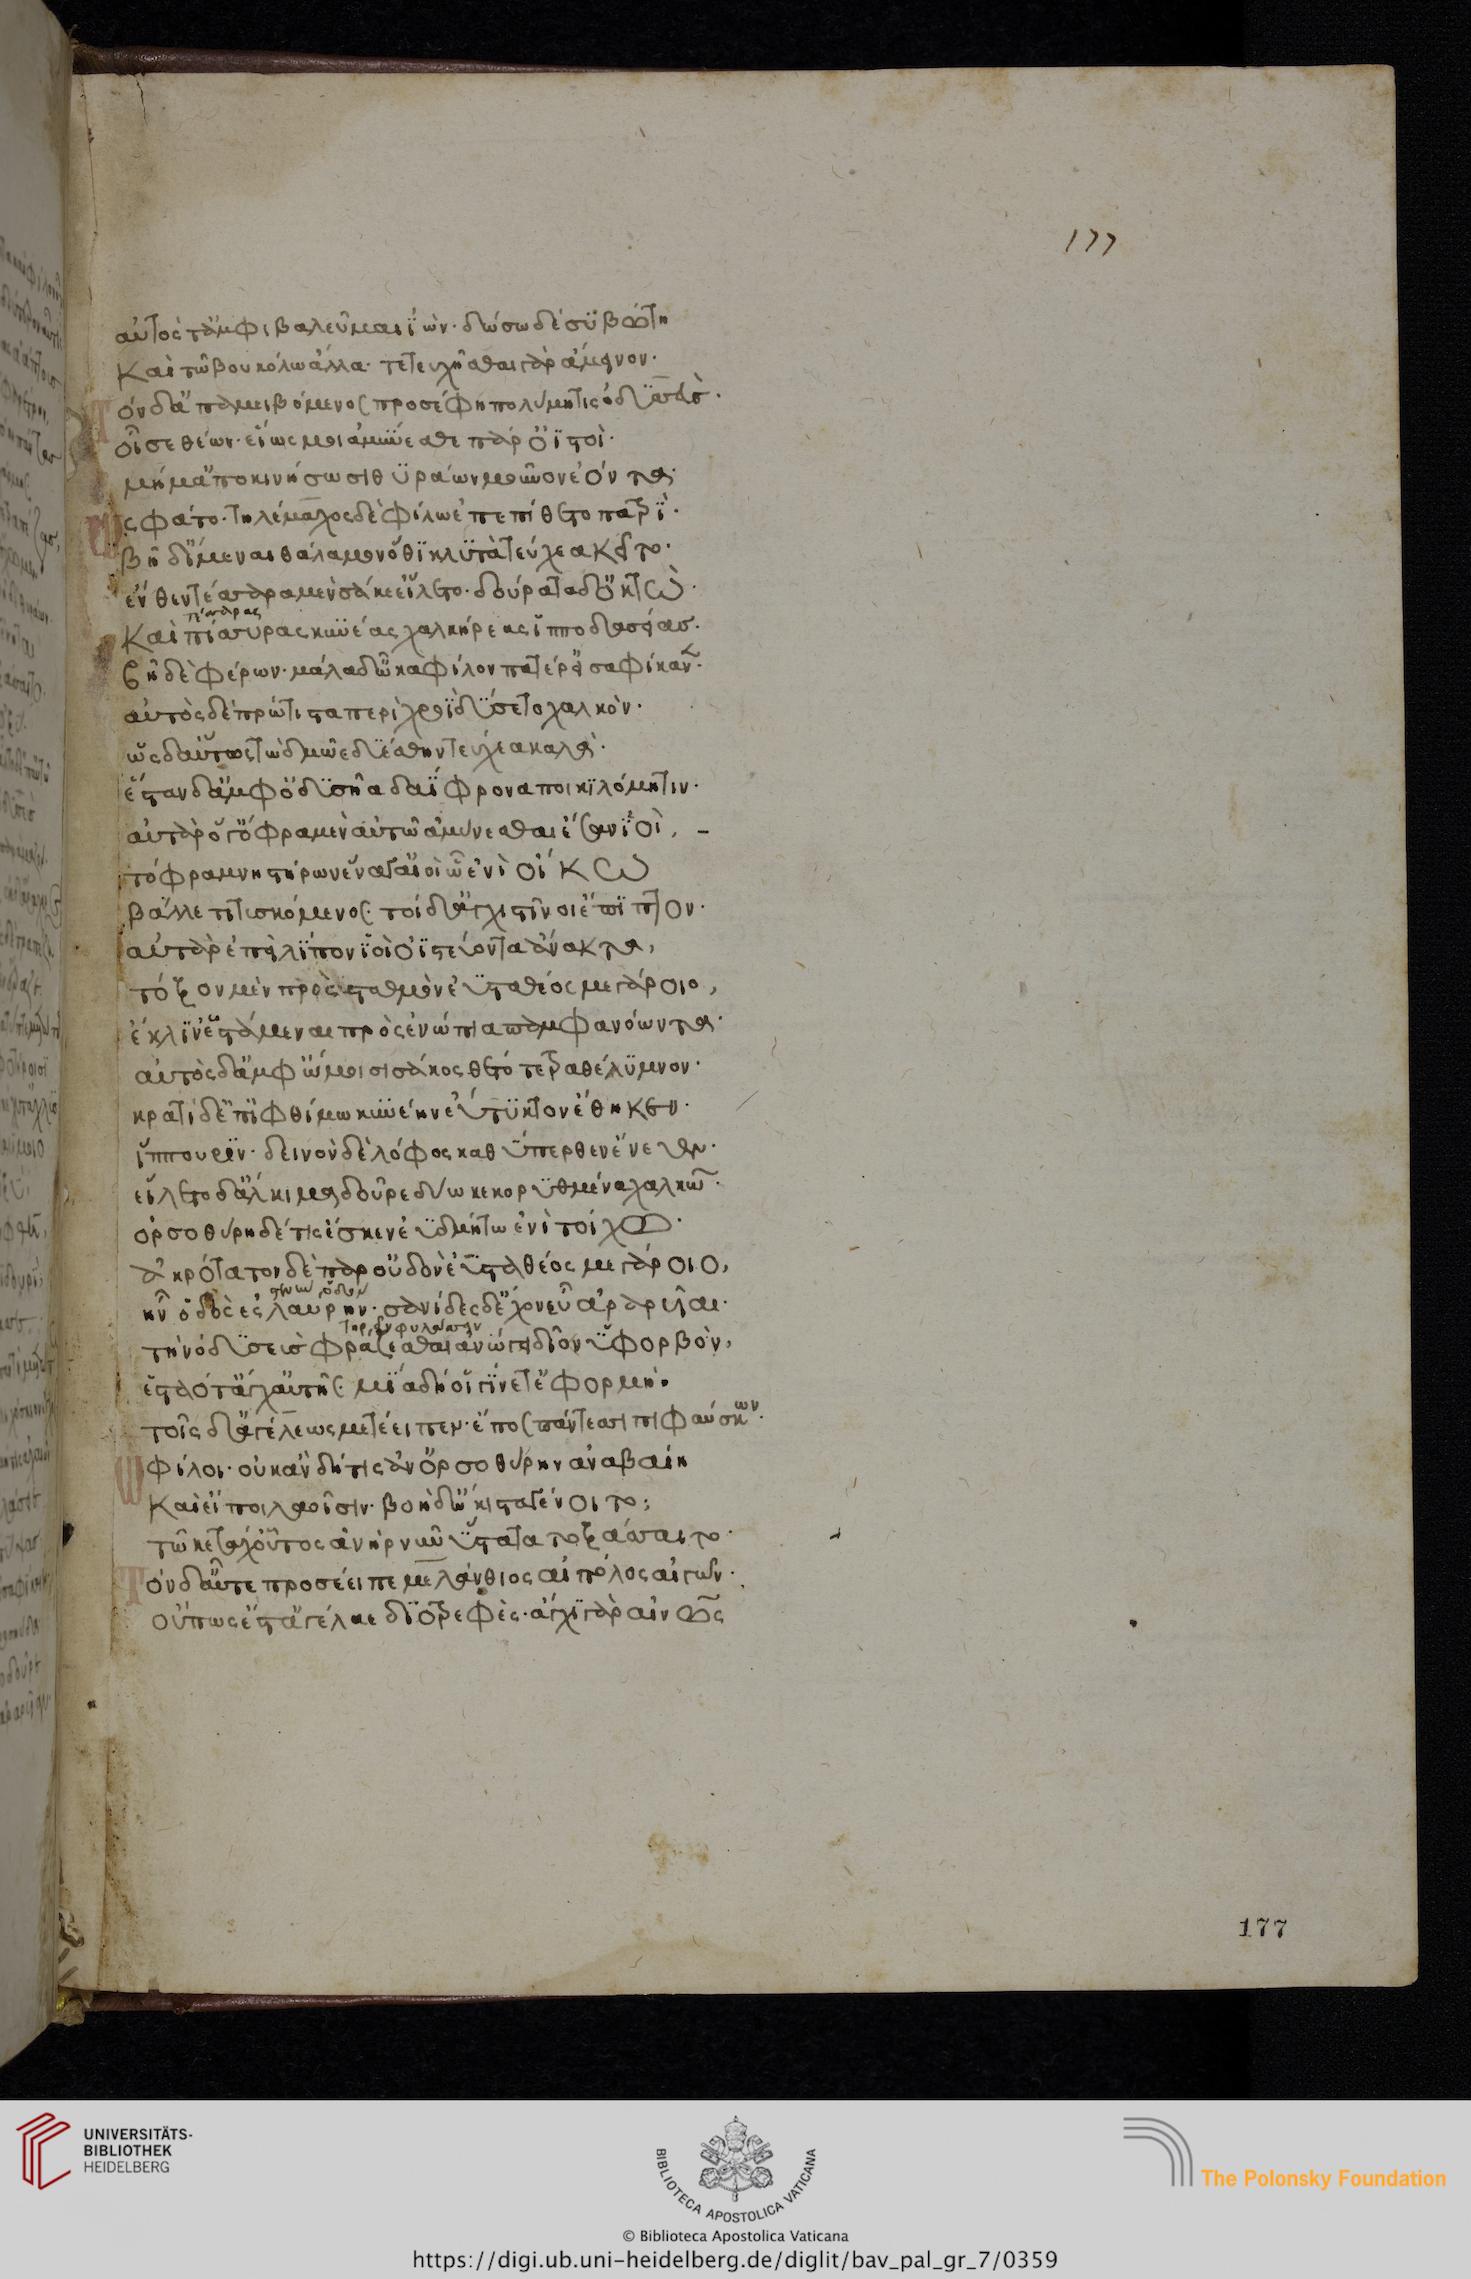 177
αὐτὸς τ' ἀμφιβαλεῦμαι ϊών· δώσω δὲ συβώτη
καὶ τῶ βουκόλω ἄλλα· τετευχῆσθαι γὰρ ἄμεινον·
Τόνδ' ἀπαμειβόμενος προσέφη πολύμητις ὀδυσσεύς·
οἶσε θέων· εἵως μοι ἀμύνεσθαι πάρ' ὀϊστοί·
μή μ' ἀποκινήσωσι θυράων μοῦνον ἐόντα·
Ὣς φάτο· τηλέμαχος δὲ φίλω ἐπεπίθετο πατρί·
βῆ δ' ἴμεναι θάλαμον ὅθι κλυτὰ τεύχεα κεῖτο·
ἔνθεν τέσσαρα μὲν σάκε εἵλετο· δούρατα δ' ὀκτώ·
τέσσαρας
καὶ πίσυρας κυνέας χαλκήρεις ἱπποδασείας·
βῆ δὲ φέρων· μάλα δ' ὦκα φίλον πατέρ' εἰσαφίκανεν·
αὐτὸς δὲ πρώτιστα περὶ χροῒ δύσετο χαλκόν·
ὣς δ' αὔτως τὼ δμῶε δυέσθην τεύχεα καλά·
ἔσταν δ' ἀμφ' ὀδυσῆα δαΐφρονα ποικιλομήτιν·
αὐτὰρ ὅγ' ὄφρα μὲν αὐτῶ ἀμύνεσθαι ἔσαν ἰοί,
τόφρα μνηστήρων ἕνα γ' αἰεὶ ὧ ἐνὶ οἴκω
βάλλε τιτυσκόμενος· τοὶ δ' ἀγχιστῖνοι ἔπιπτον·
αὐτὰρ ἐπεὶ λίπον ἰοὶ ὀϊστεύοντα ἄνακτα,
τόξον μὲν πρὸς σταθμὸν ἐϋσταθέος μεγάροιο,
ἔκλιν' ἑστάμεναι πρὸς ἐνώπια παμφανόωντα·
αὐτὸς δ' ἀμφ' ὤμοισι σάκος θέτο τετραθέλυμνον·
κρατὶ δ' ἐπ' ἰφθίμω κυνέην εὔτυκτον ἔθηκεν·
ἵππουριν· δεινὸν δὲ λόφος καθύπερθεν ἔνευεν·
εἵλετο δ' ἄλκιμα δοῦρε δύω κεκορυθμένα χαλκῶ·
ὀρσοθύρη δέ τις ἔσκεν ἐϋδμήτω ἐνὶ τοίχω·
ἀκρότατον δὲ παρ' οὐδὸν ἐϋσταθέος μεγάροιο,
ἣν ὁδὸς ἐς λαύρην· σανίδες δ' ἔχον εὖ ἀραρυῖαι·
τὴν ὀδυσεὺς φράζεσθαι ἀνώγει δῖον ὑφορβόν,
ἑσταότ' ἄγχ' αὐτῆς· μία δ' οἴη γίνετ' ἐφορμή·
τοῖς δ' ἀγέλεως μετέειπεν· ἔπος πάντεσσι πιφαύσκων·
Ὦ φίλοι· οὐκ ἂν δή τις ἀν' ὀρσοθύρην ἀναβαίη
καὶ εἴποι λαοῖσιν· βοὴ δ' ὤκιστα γένοιτο;
τῶ κε τάχ' οὗτος ἀνὴρ νῦν ὕστατα τοξάσσαιτο·
Τόνδ' αὖτε προσέειπε μελάνθιος αἰπόλος αἰγῶν·
οὔπως ἔστ' ἀγέλαε διοτρεφές· ἄγχι γὰρ αἰνῶς
177
UNIVERSITÄTS-
BIBLIOTHEK
HEIDELBERG
BIBLIOTECA APOSTOLICA VATICANA
The Polonsky Foundation
© Biblioteca Apostolica Vaticana
https://digi.ub.uni-heidelberg.de/diglit/bav_pal_gr_7/0359